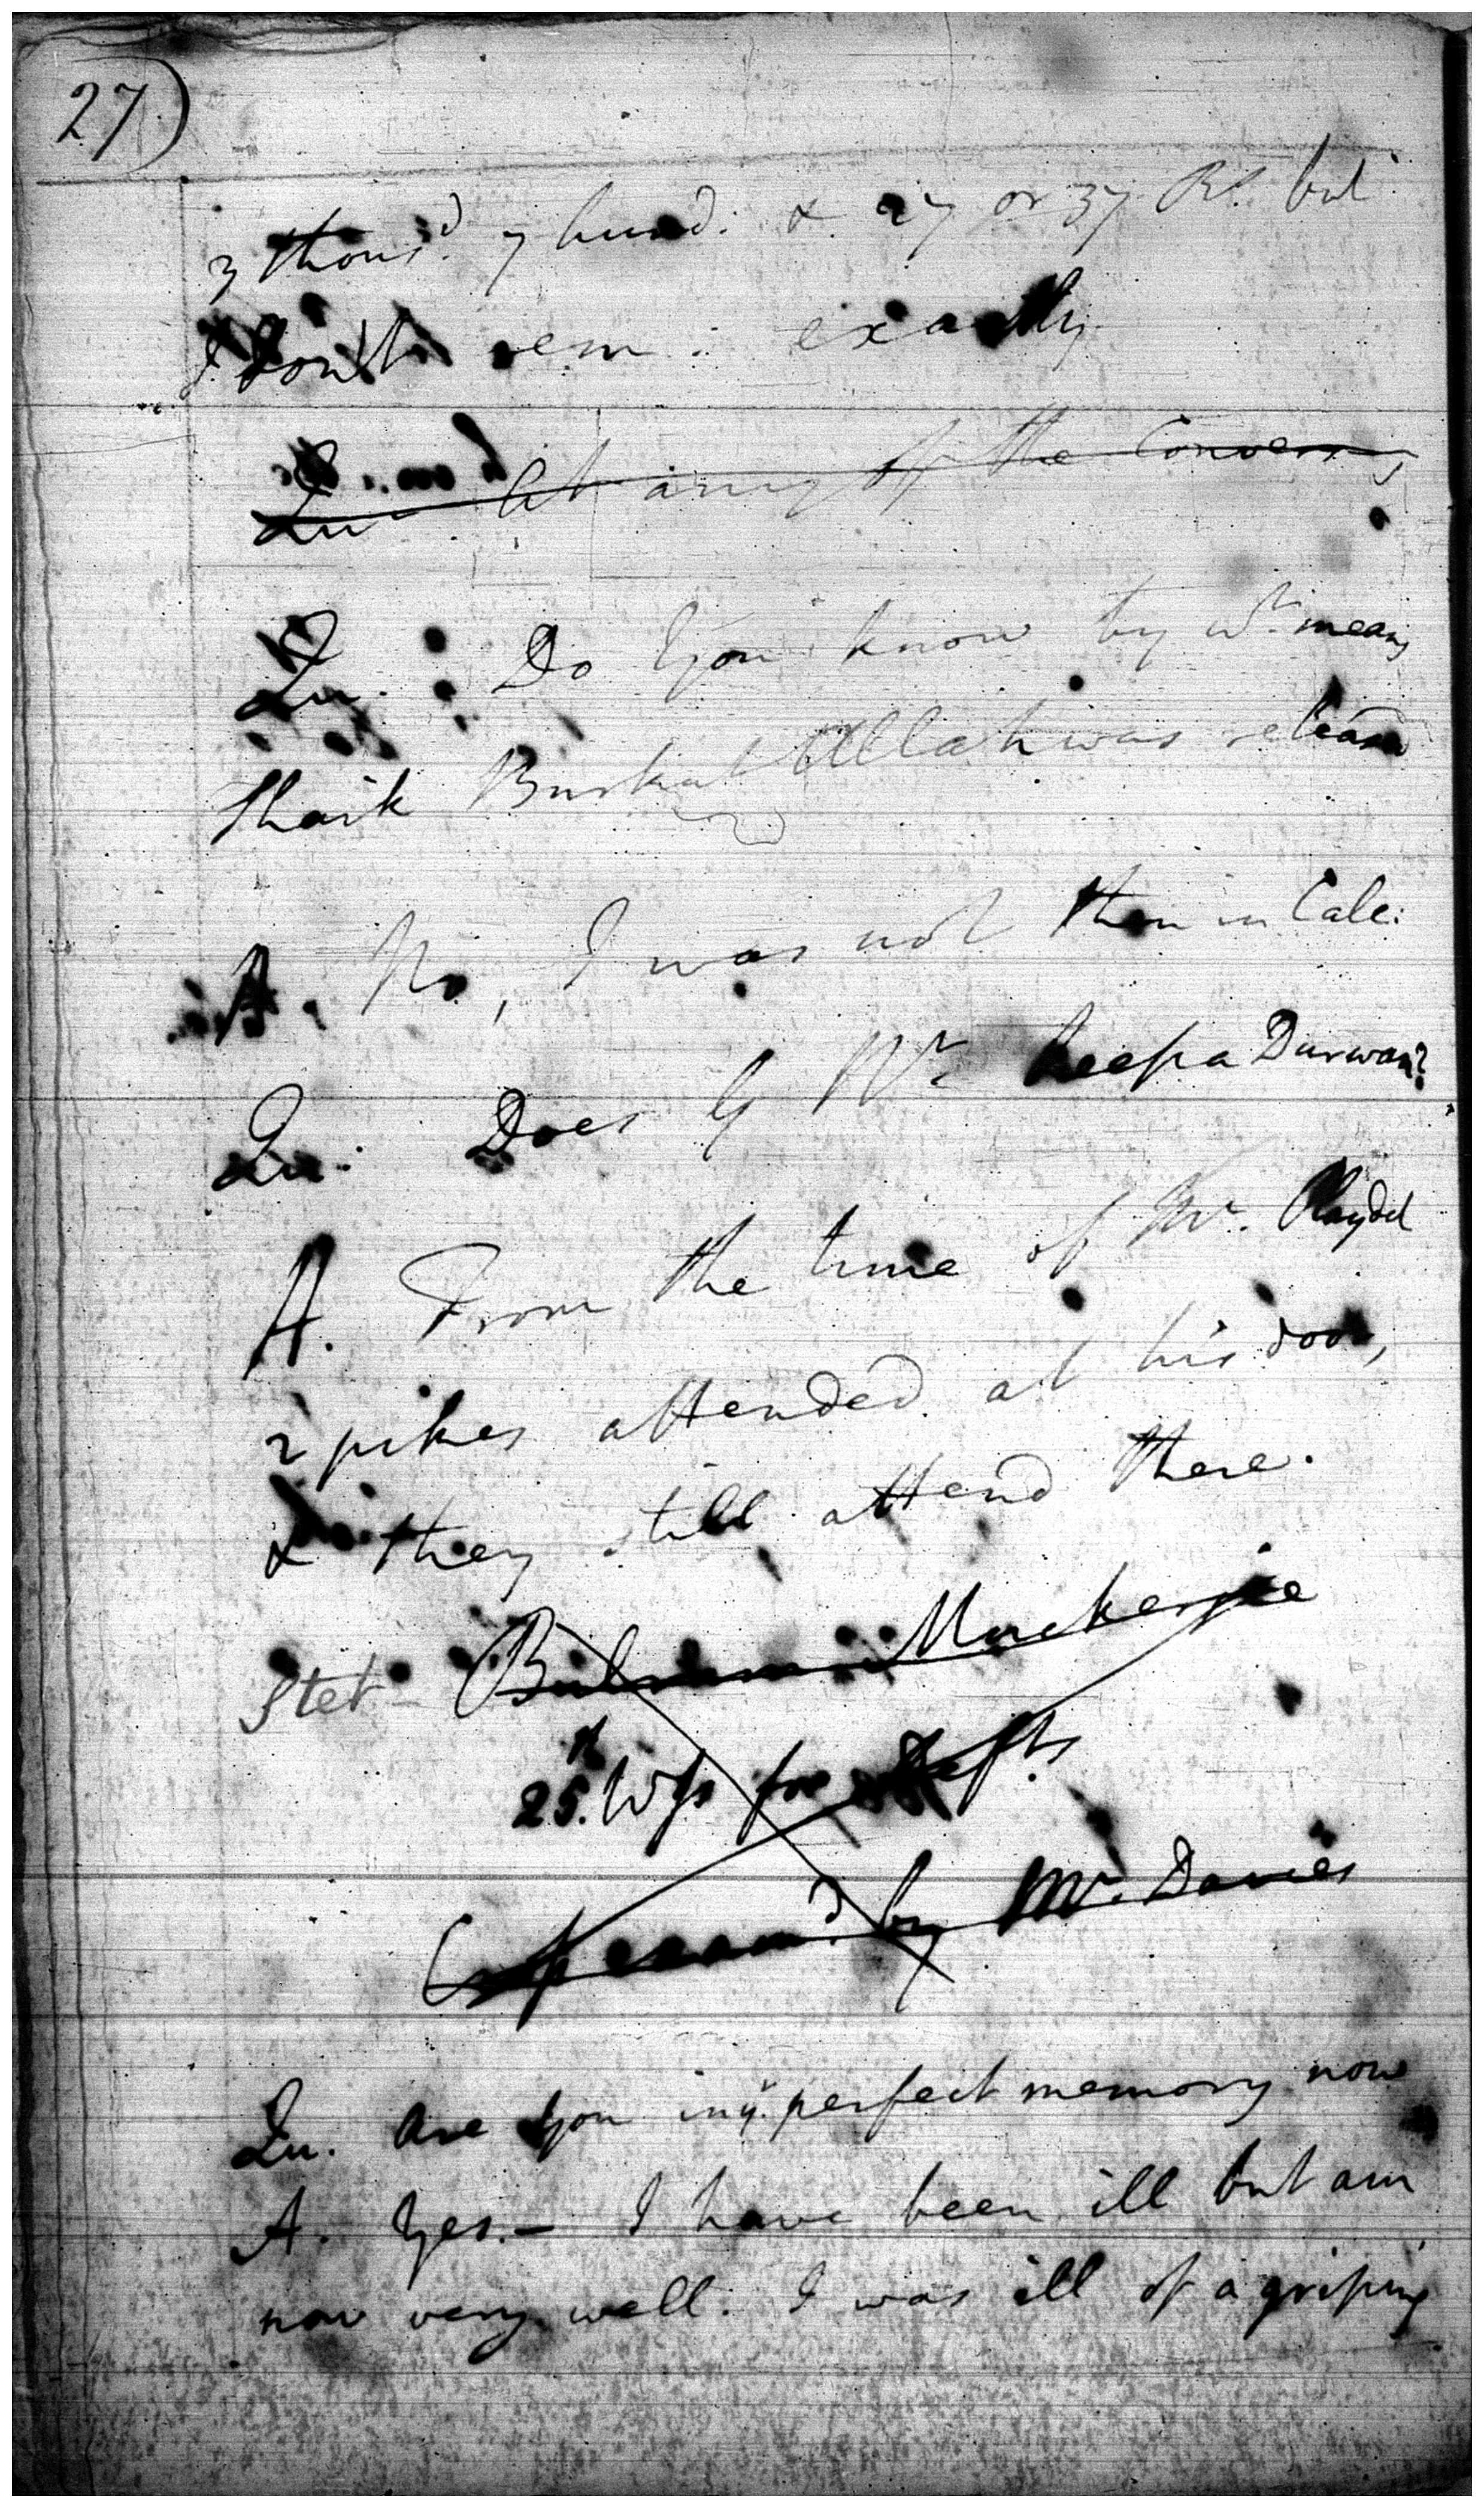 27)
3 thous.d 7 hund: & 27 or 37 Rs. but
I don't rem: exactly.
Qu. At any of the Convers
Qu. Do you know by wt. means
Shaik Burkut Ullah was releasd
A. No, I was not then in Calc:
Qu: Does G Wr keep a Durwan?
A. From the time of Mr. Playdel
2 pikes attended at his door,
& they still attend there.
Stet - Bulram Muckerjee
25.th Wss for Defts
(X exam.d by Mr. Davies
Qu. Are you in yr. perfect memory now
A. Yes. - I have been ill but am
now very well. I was ill of a griping